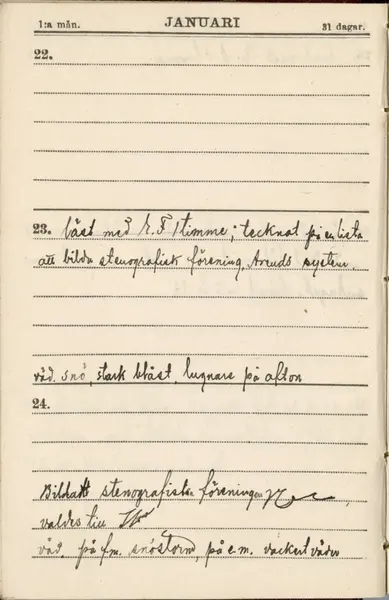 1:a mån. JANUARI 31 dagar.
22.
23. läst med K. F. Stimme; tecknat på en lista
att bilda stenografisk förening, Arends system.
väd. snö, stark blåst, lugnare på afton
24.
Bildatt stenografiska föreningen
valdes till
väd. på fm. snöstorm, på e.m. vackert väder